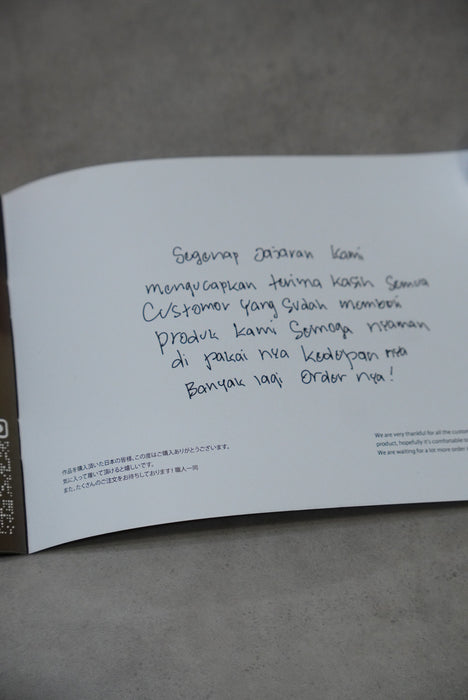 Segenap Jajaran Kami
mengucapkan terima kasih Semua
Customer yang Sudah membeli
produk kami Semoga nyaman
di pakai nya kedepan nya
Banyak lagi Order nya!
作品を購入頂いた日本の皆様、この度はご購入ありがとうございます。
気に入って履いて頂けると嬉しいです。
また、たくさんのご注文をお待ちしております! 職人一同
We are very thankful for all the
product, hopefully it's comfortable
We are waiting for a lot more order